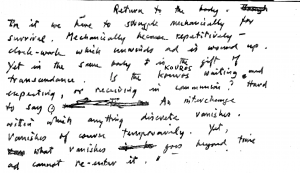 Return to the body.
In it we have to struggle mechanically for
survival. Mechanically because repetitively –
clock-work which unwinds ad is wound up.
Yet in the same body is the gift of
KOUROS
transcendence. Is the kouros waiting, and
expecting, or receiving in communion? Hard
to say. An interchange
within which anything discrete vanishes.
Vanishes of course temporarily. Yet,
what vanishes goes beyond time
ad cannot re-enter it.